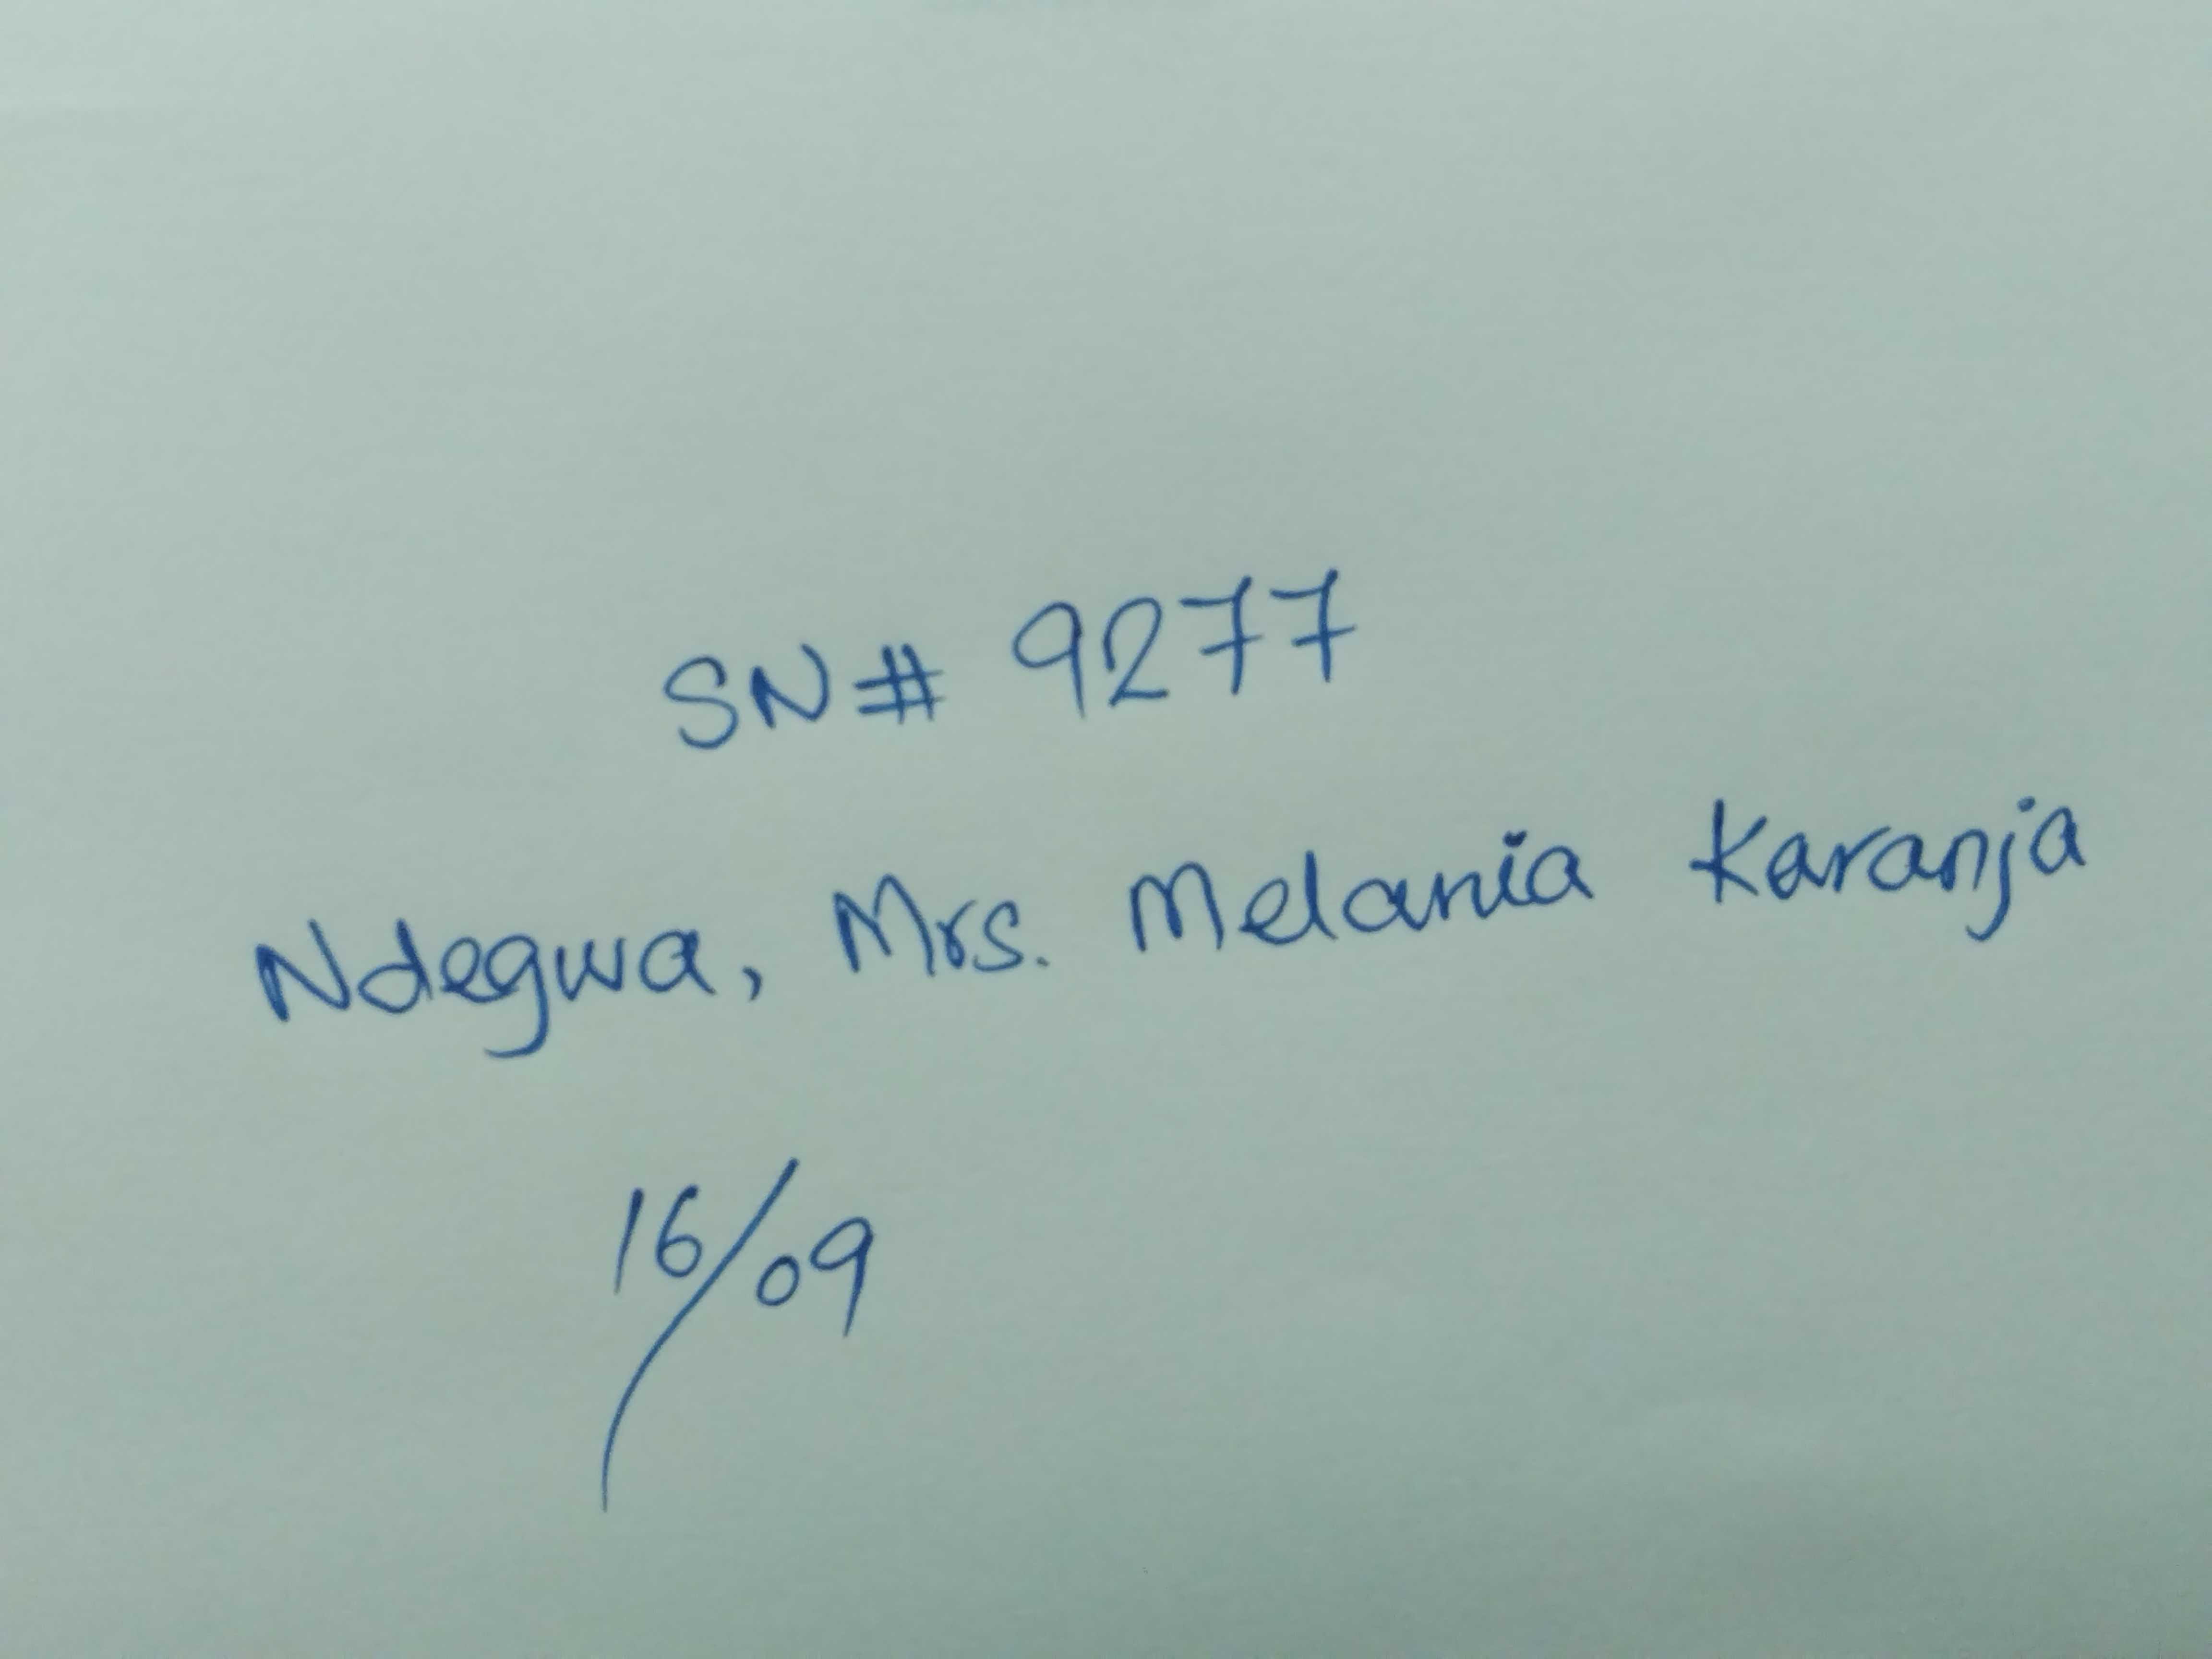 SN# 9277
Ndegwa, Mrs. Melania Karanja
16/09